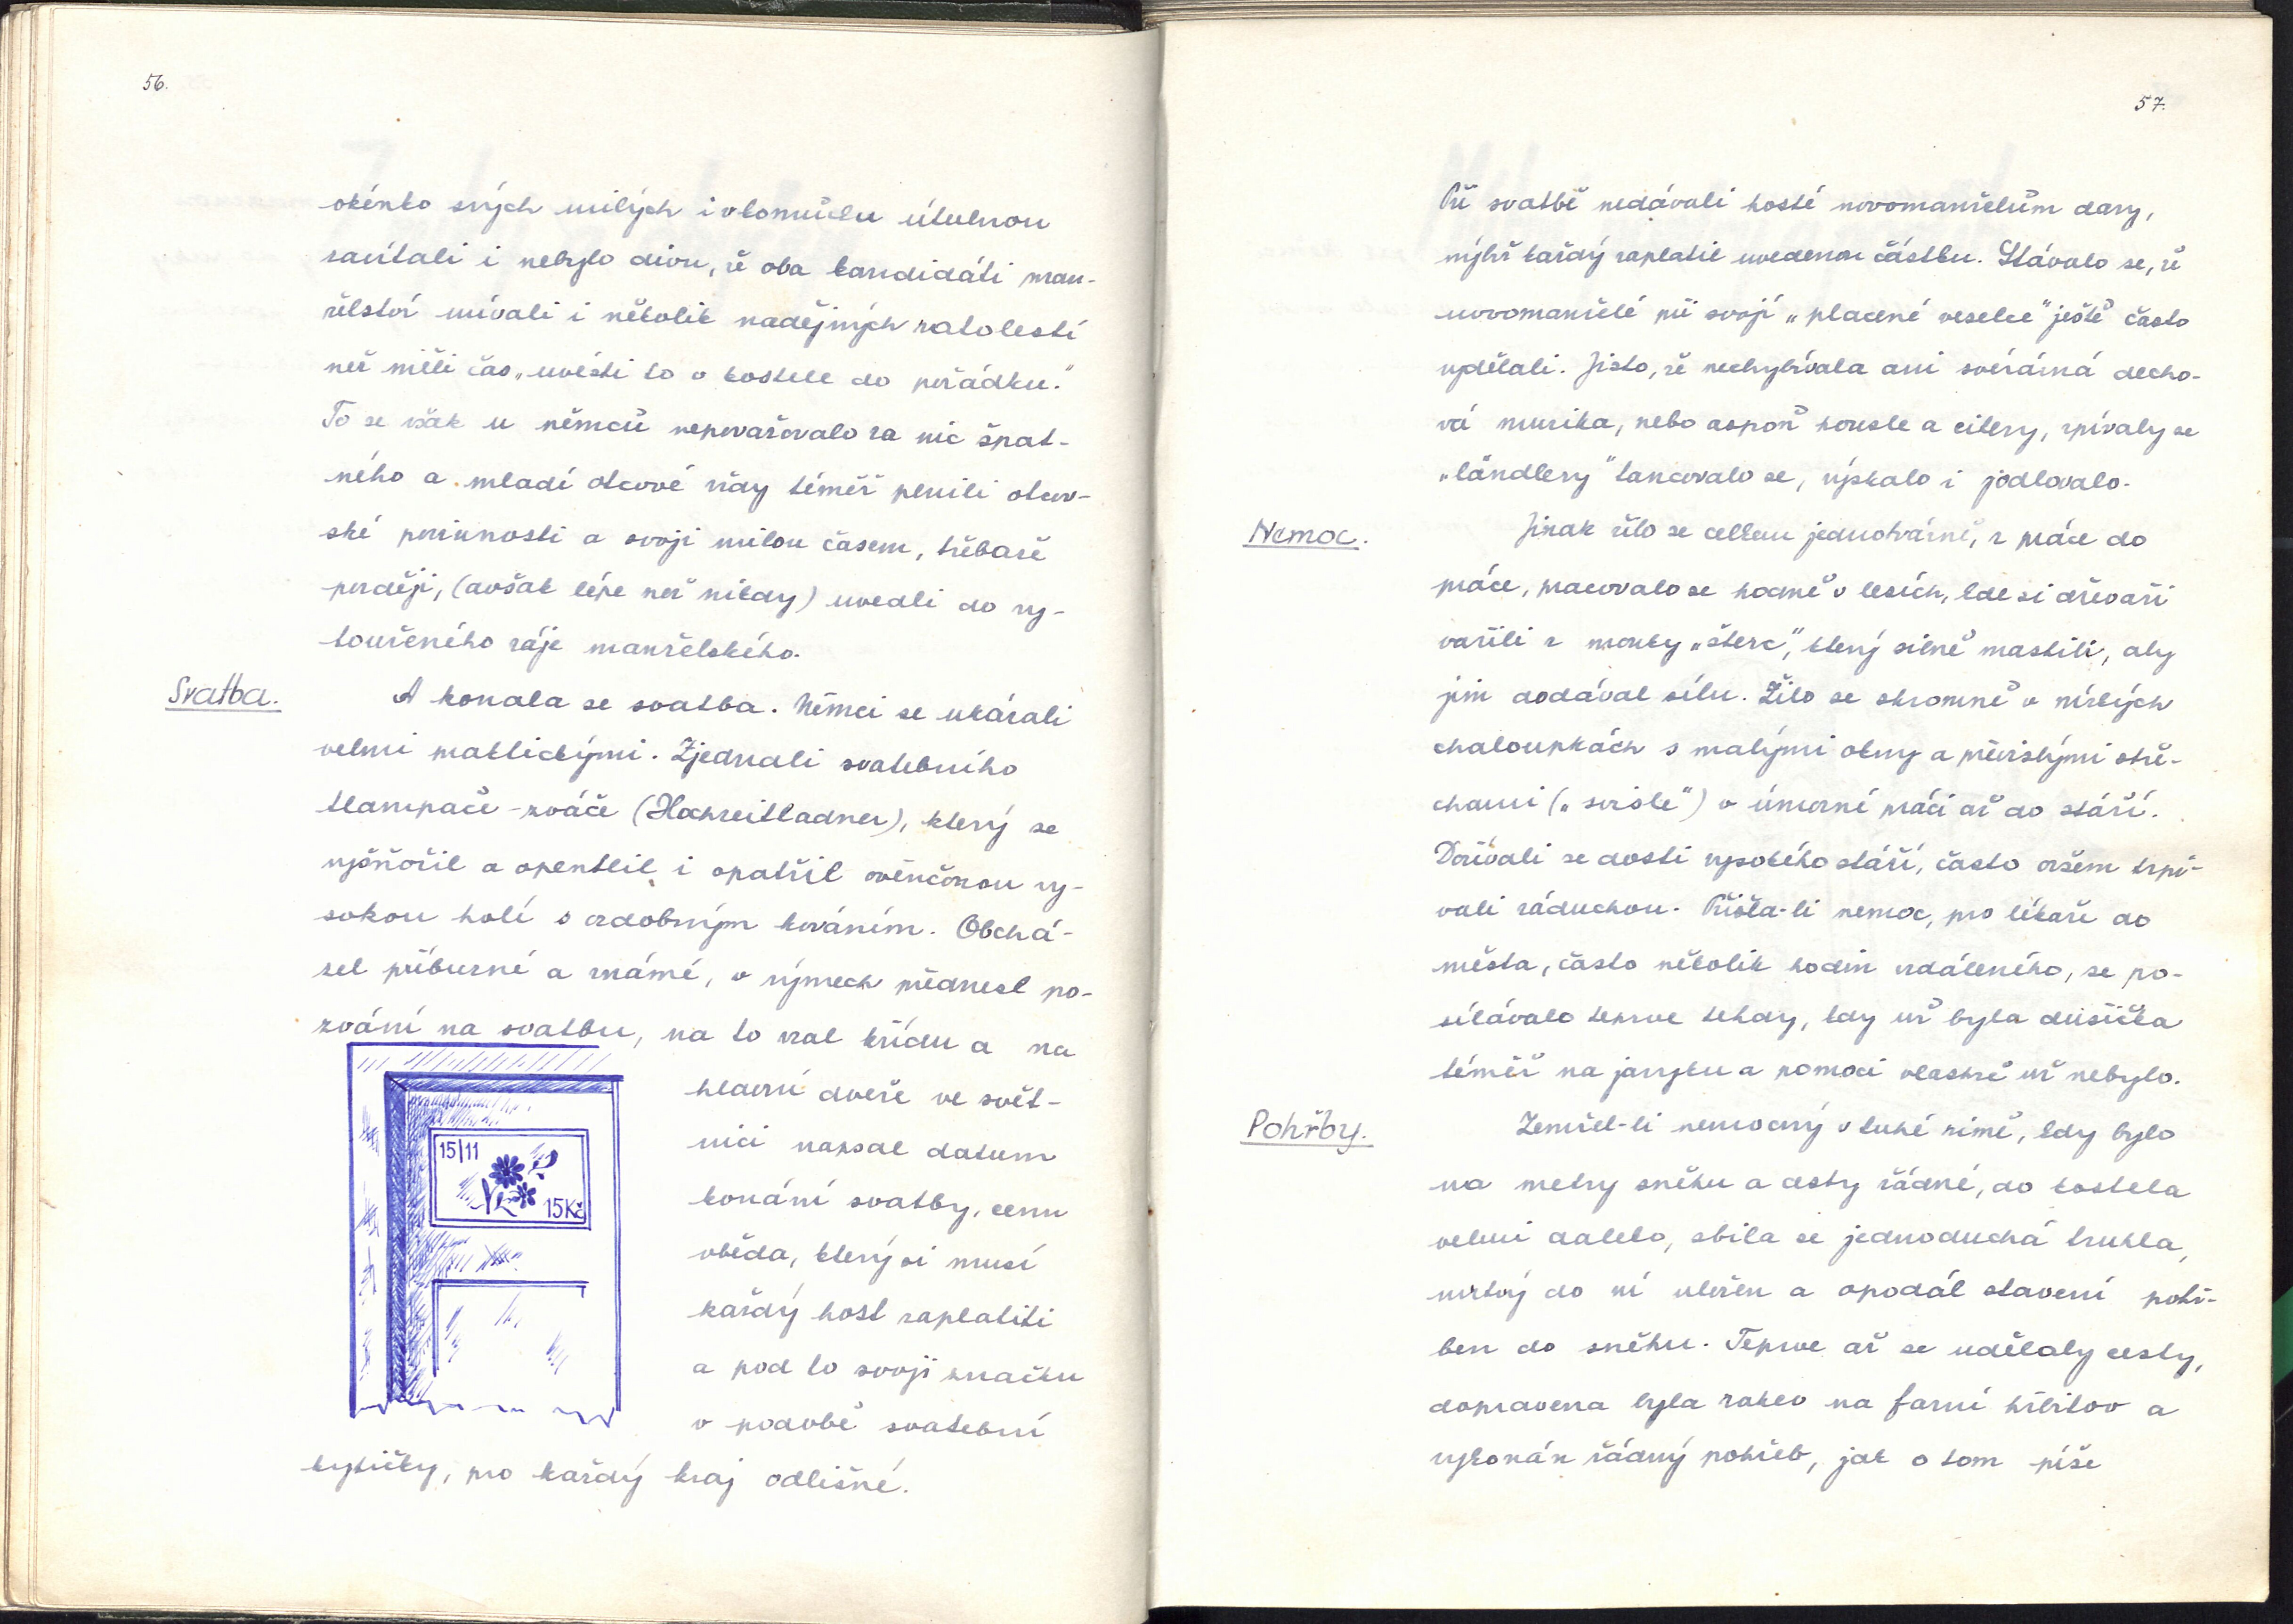 56.
okénko svých milých i v komůrku útulnou
zavítali i nebylo divu, že oba kandidáti man-
želství mívali i několik nadějných ratolestí
než měli čas „uvésti to v kostele do pořádku.“
To se však u němců nepovažovalo za nic špat-
ného a mladí otcové vždy téměř plnili otcov-
ské povinnosti a svoji milou časem, třebaže
později, (avšak lépe než nikdy) uvedli do vy-
touženého ráje manželského.
Svatba.
A konala se svatba. Němci se ukázali
velmi praktickými. Zjednali svatebního
tlampače - zváče (Hochzeitladner), který se
vyšňořil a opentlil i opatřil ověnčenou vy-
sokou holí s ozdobným kováním. Obchá-
zel příbuzné a známé, v rýmech přednesl po-
zvání na svatbu, na to vzal křídu a na
hlavní dveře ve svět-
nici napsal datum
konání svatby, cenu
oběda, který si musí
každý host zaplatiti
a pod to svoji značku
v podobě svatební
kytičky, pro každý kraj odlišné.
15/11
15Kč
57.
Při svatbě nedávali hosté novomanželům dary,
nýbrž každý zaplatil uvedenou částku. Stávalo se, že
novomanželé při svojí „placené veselce“ ještě často
vydělali. Jisto, že nechybívala ani svérázná decho-
vá muzika, nebo aspoň housle a citery, zpívaly se
„ländlery“ tancovalo se, výskalo i jodlovalo.
Nemoc.
Jinak žilo se celkem jednotvárně, z práce do
práce, pracovalo se hodně v lesích, kde si dřevaři
vařili z mouky „šterc“, který silně mastili, aby
jim dodával sílu. Žilo se skromně v nízkých
chaloupkách s malými okny a převislými stře-
chami („svisle“) v úmorné práci až do stáří.
Dožívali se dosti vysokého stáří, často ovšem trpí-
vali záduchou. Přišla-li nemoc, pro lékaře do
města, často několik hodin vzdáleného, se po-
sílávalo teprve tehdy, kdy už byla dušička
téměř na jazyku a pomoci vlastně už nebylo.
Pohřby.
Zemřel-li nemocný v tuhé zimě, kdy bylo
na metry sněhu a cesty žádné, do kostela
velmi daleko, sbila se jednoduchá truhla,
mrtvý do ní uložen a opodál stavení pohř-
ben do sněhu. Teprve až se udělaly cesty,
dopravena byla rakev na farní hřbitov a
vykonán řádný pohřeb, jak o tom píše